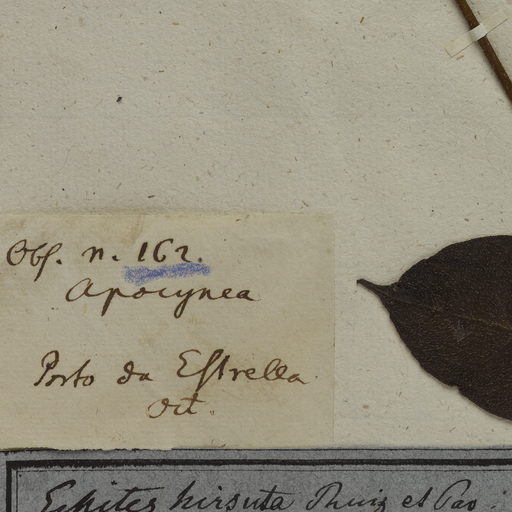 Obs. n. 162.
Apocynea
Porto da Estrella
Oct.
Echites hirsuta Ruiz et Pav.